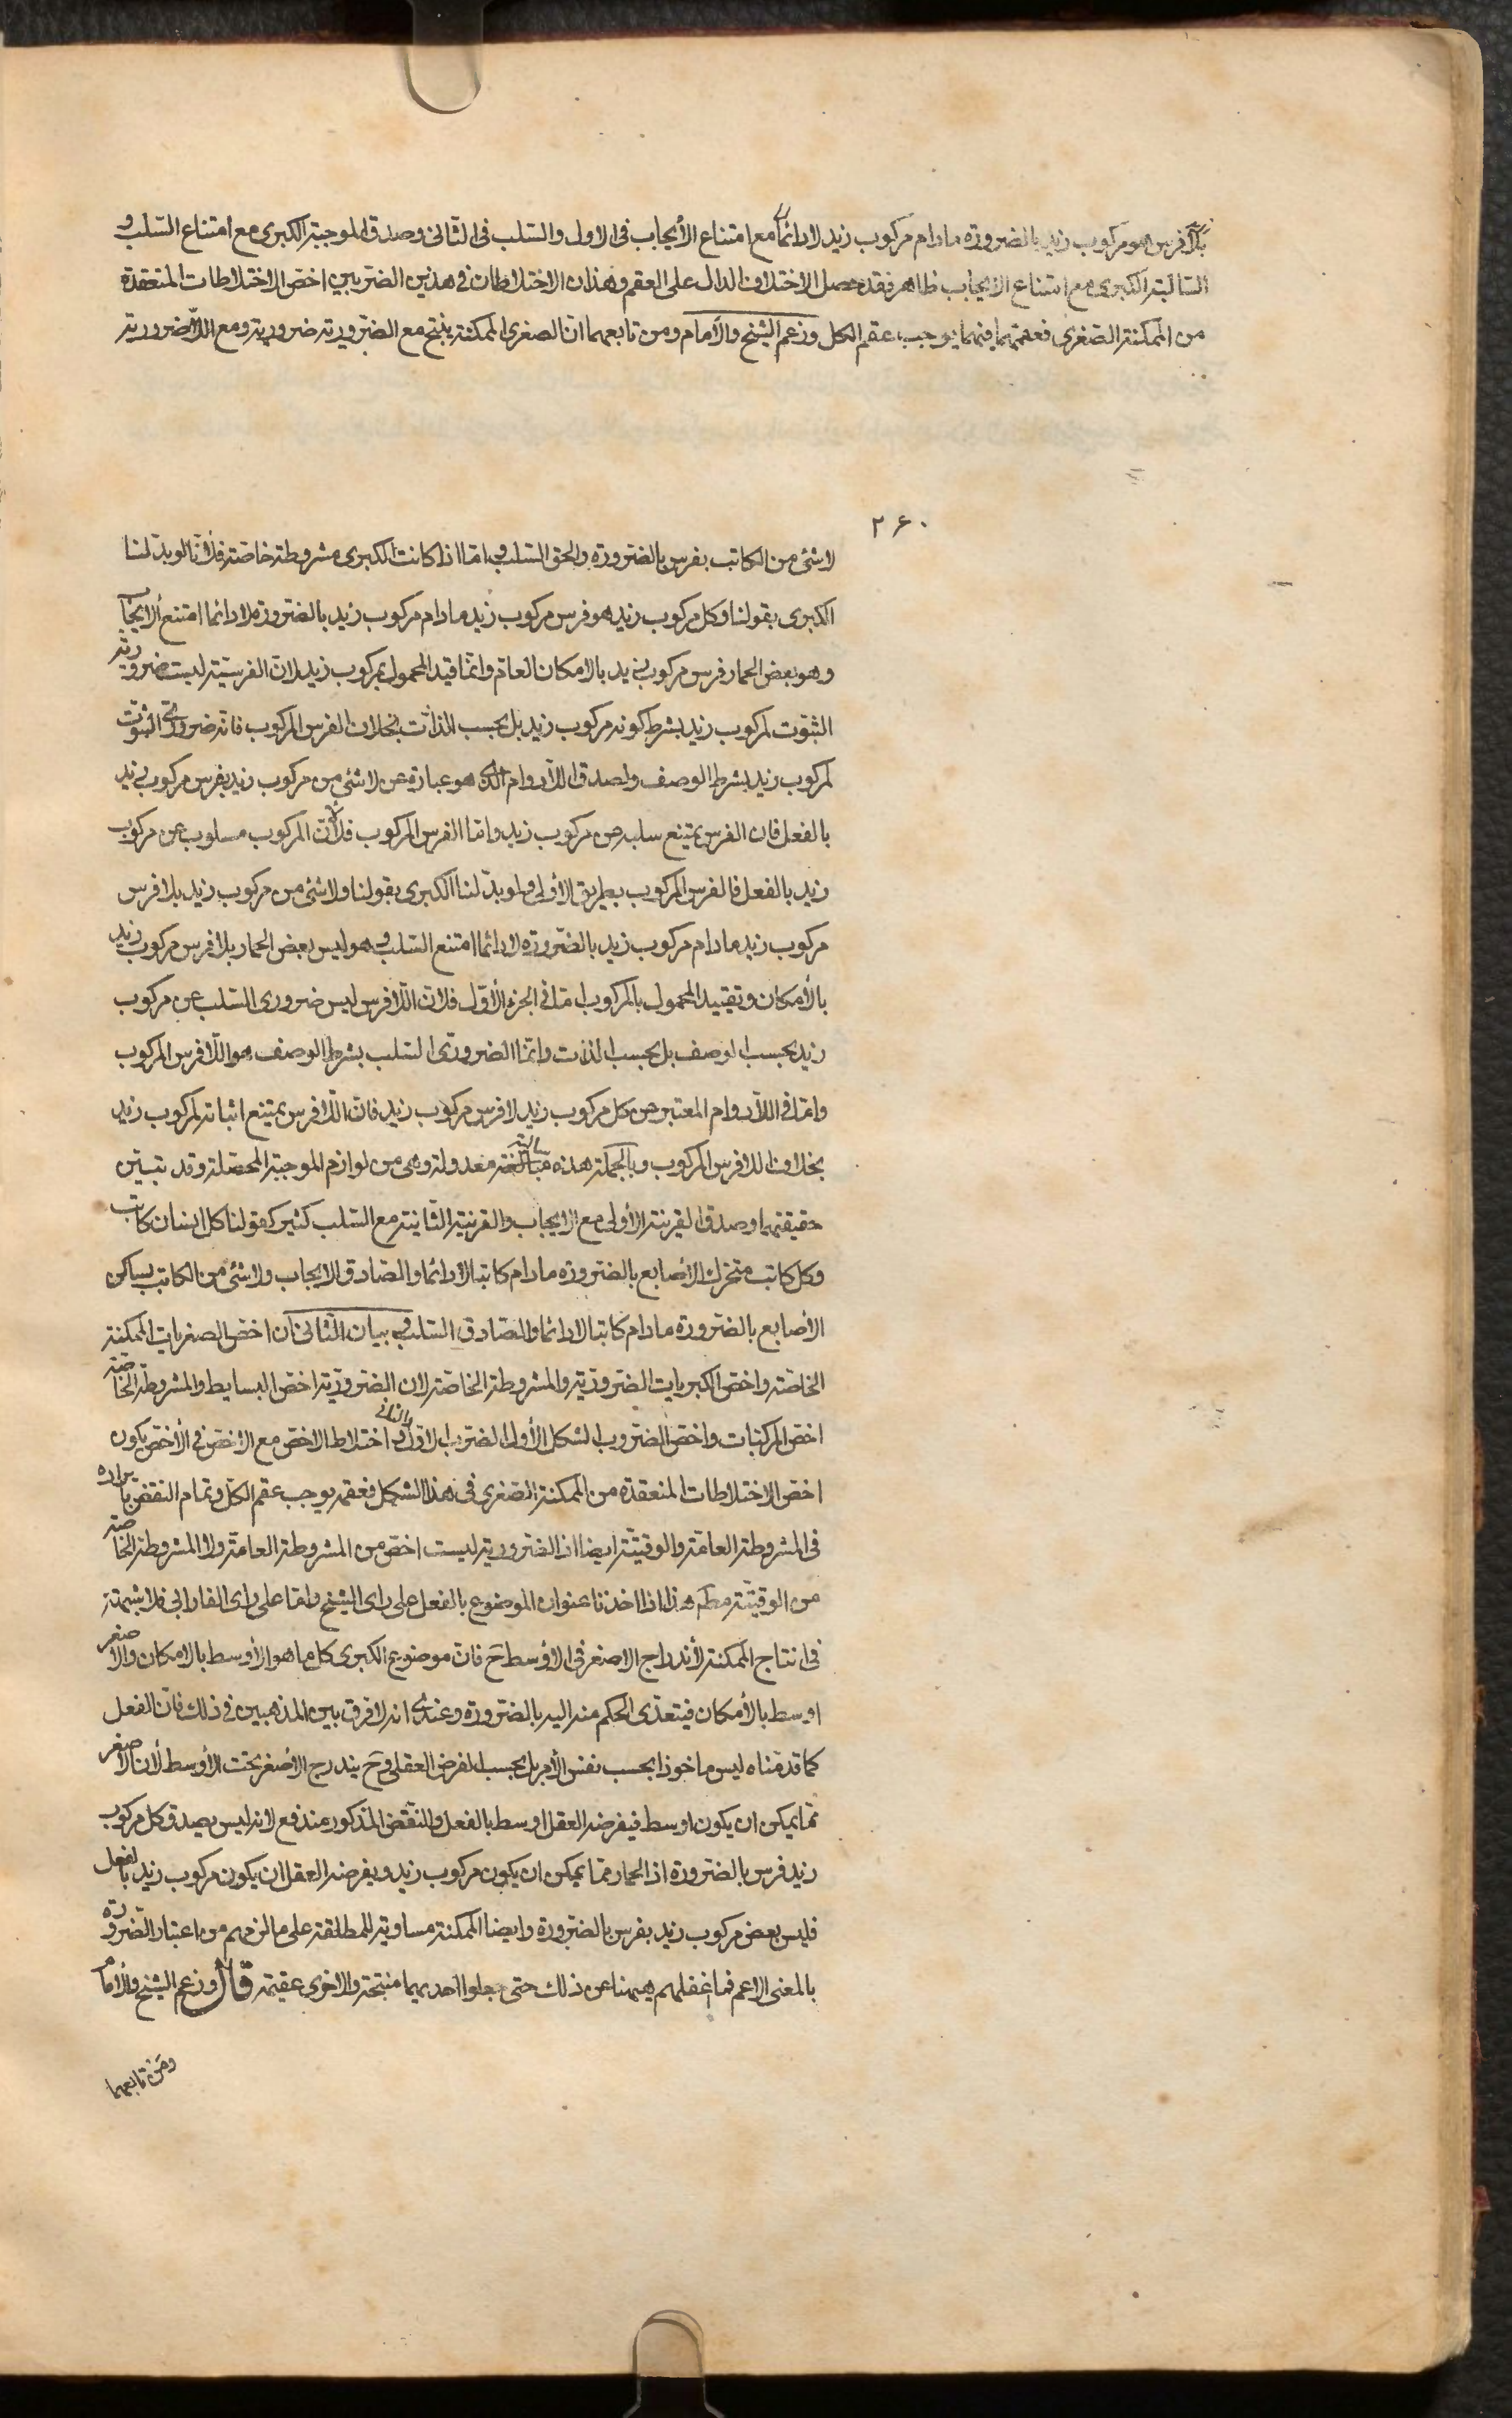 بلا فرس هو مركوب زيد بالضرورة مادام مركوب زيد لا دائما مع امتناع الأيجاب فى الاول والسّلب فى الثّانى وصدق الموجبة الكبرى مع امتناع السّلب و
السّالبة الكبرى مع امتناع الايجاب ظاهر فقد حصل الاختلاف الدال على العقم وهذان الاختلاطان فى هذين الضّربين اخصّ الاختلاطات المنعقدة
من الممكنة الصّغرى فعقمهما فيهما يوجب عقم الكل وزعم الشّيخ والأمام ومن تابعهما انّ الصغرى الممكنة ينتج مع الضّروريّة ضروريّة ومع اللّاضروريّة
٢۶٠
لا شئ من الكاتب بفرس بالضّرورة والحق السّلب و امّا اذا كانت الكبرى مشروطة خاصّة فلأنّا لو بدّلنا
الكبرى بقولنا وكل مركوب زيد هو فرس مركوب زيد مادام مركوب زيد بالضّرورة لا دائما امتنع الايجاب
وهو بعض الحمار فرس مركوب زيد بالامكان العامّ وانّما قيد المحمول بمركوب زيد لانّ الفرسيّة ليست ضروريّة
الثبوت لمركوب زيد بشرط كونه مركوب زيد بل بحسب الذّات بخلاف الفرس المركوب فانّه ضرورىّ الثّبوت
لمركوب زيد بشرط الوصف ولصدق اللّادوام الّذى هو عبارة عن لا شئ من مركوب زيد بفرس مركوب زيد
بالفعل فان الفرس يمتنع سلبه عن مركوب زيد وامّا الفرس المركوب فلأنّ المركوب مسلوب عن مركوب
زيد بالفعل فالفرس المركوب بطريق الأولى ولو بدّلنا الكبرى بقولنا ولا شئ من مركوب زيد بلا فرس
مركوب زيد مادام مركوب زيد بالضّرورة لا دائما امتنع السّلب و هو ليس بعض الحمار بلا فرس مركوب زيد
بالأمكان وتقييد المحمول بالمركوب امّا فى الجزء الأوّل فلانّ اللّافرس ليس ضرورى السّلب عن مركوب
زيد بحسب الوصف بل بحسب الذّات وانّما الضرورىّ السّلب بشرط الوصف هو اللّافرس المركوب
وامّا فى اللّادوام المعتبر عن كل مركوب زيد لا فرس مركوب زيد فانّ اللّافرس يمتنع اثباته لمركوب زيد
بخلاف اللافرس المركوب وبالجملة هذه سالبة معدولة وهى من لوازم الموجبة المحصّلة وقد تبيّن
حقيقتهما وصدق القرينة الأولى مع الايجاب والقرينة الثّانية مع السّلب كثير كقولنا كل انسان كاتب
وكل كاتب متحرّك الأصابع بالضّرورة مادام كاتبا لا دائما والصّادق الايجاب ولا شئ من الكاتب بساكن
الأصابع بالضّرورة مادام كاتبا لا دائما والصّادق السّلب و بيان الثّانى انّ اخصّ الصغريات الممكنة
الخاصّة واخصّ الكبريات الضّروريّة والمشروطة الخاصّة لان الضّروريّة اخصّ البسايط والمشروطة الخاصّة
اخصّ المركبّات واخصّ الضّروب الشكل الأول الضّرب الاوّل والثانى و اختلاط الاخصّ مع الاخصّ فى الأخصّ يكون
اخصّ الاختلاطات المنعقدة من الممكنة الصّغرى فى هذا الشكل فعقمه يوجب عقم الكلّ وتمام النقض بايراده
فى المشروطة العامّة والوقتيّة ايضا اذ الضّروريّة ليست اخصّ من المشروطة العامّة ولا المشروطة الخاصّة
من الوقتيّة مطم هذا اذا اخذنا عنوان الموضوع بالفعل على راى الشيخ وامّا على راى الفارابى فلا شبهة
فى انتاج الممكنة لأندراج الاصغر فى الاوسط ح فانّ موضوع الكبرى كل ما هو الأوسط بالامكان والاصغر
اوسط بالأمكان فيتعدّى الحكم منه اليه بالضّرورة وعندى انه لا فرق بين المذهبين فى ذلك فانّ الفعل
كما قدمناه ليس ماخوذا بحسب نفس الأمر بل بحسب الفرض العقلى وح يندرج الأصغر تحت الأوسط لأن الأصغر
ممّا يمكن ان يكون اوسط فيفرضه العقل اوسط بالفعل والنّقض المذكور مندفع لانه ليس يصدق كل مركوب
زيد فرس بالضّرورة اذ الحمار ممّا يمكن ان يكون مركوب زيد ويفرضه العقل ان يكون مركوب زيد بالفعل
فليس بعض مركوب زيد بفرس بالضّرورة وايضا الممكنة مساوية للمطلقة على ما لزمهم من اعتبار الضّرورة
بالمعنى الاعم فما غفلهم هيهنا عن ذلك حتى جعلوا احديهما منتجة والاخرى عقيمة قال وزعم الشيخ والأمام
ومن تابعهما